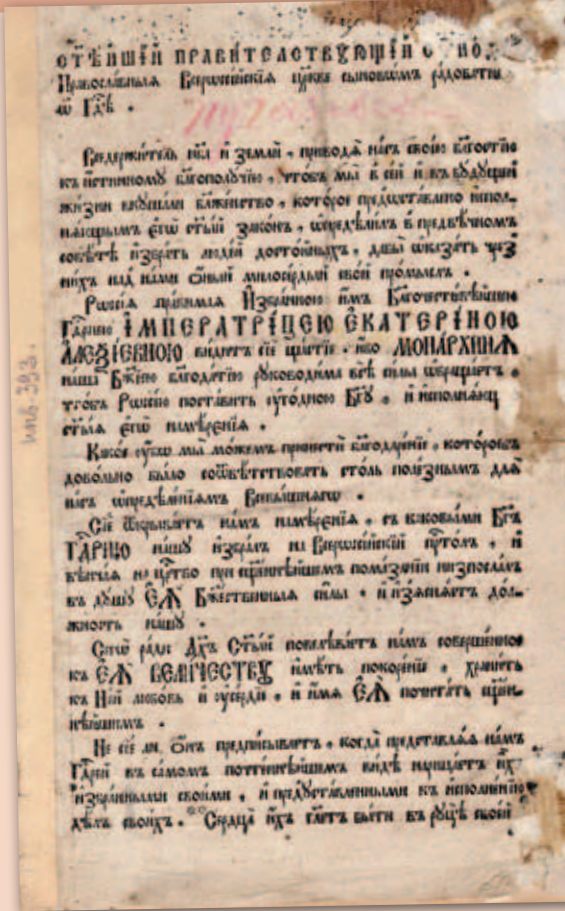 СТѢ́ЙШІЙ ПРАВИ́ТЕЛСТВУЮЩІЙ СѴНО́
Правосла́вныя Всеросси́йскія цр҃кве сыновѡ́мъ ра́доватися
ѡ҆ Гдⷭ҇ѣ .
Вседержи́тель нб҃а и҆ землѝ , приводѧ̀ на́съ свое́ю бл҃гостїю
къ и҆́стинному бл҃гополу́чїю , что́бъ мы̀ в̾ се́й и҆ въ бу́дущей
жи́зни вкуси́ли бл҃же́нство , кото́рое предоста́влено и҆спол-
ня́ющымъ є҆гѡ̀ ст҃ы́й зако́нъ , ѡ҆предѣли́лъ в̾ предвѣ́чномъ
совѣ́тѣ и҆збра́ть люде́й досто́йныхъ , дабы̀ ѡ҆каза́ть чрез̾
ни́хъ над̾ на́ми ѻ҆́ный милосе́рдый сво́й про́мыслъ .
Рѡссі́я пра́вимая И҆збра́нною и҆́мъ Бл҃гочести́вѣйшею
Гдⷭ҇рнею І҆МПЕРАТРІ́ЦЕЮ Є҆КАТЕРІ́НОЮ
А҆ЛЕѮІ́ЕВНОЮ ви́дитъ сїѐ ща́стїе . и҆́бо МОНА́РХИНѦ
на́ша Бж҃їею бл҃года́тїю руководи́ма всѣ̀ си́лы ѡ҆браща́етъ ,
что́бъ Рѡссі́ю поста́вить ᲂу҆го́дною Бг҃у , и҆ и҆сполня́ющ
ст҃ы́я є҆гѡ̀ намѣ́ренїя .
Како́е ᲂу҆́бѡ мы̀ мо́жемъ принестѝ бл҃годаре́нїе , кото́роебъ
дово́льно бы́ло соѿвѣ́тствовать сто́ль поле́знымъ для̀
на́съ ѡ҆предѣле́нїямъ Всевы́шнягѡ .
Сїѐ ѿкрыва́етъ на́мъ намѣ́ренїя , съ каковы́ми Бг҃ъ
ГДⷭ҇РНЮ на́шу и҆збра́лъ на Всеросси́йскїй прⷭ҇то́лъ , и҆
вѣнча́я на црⷭ҇тво при сщ҃е́ннѣйшемъ пома́занїи низпосла́лъ
въ ду́шу Є҆Ѧ̀ Бж҃е́ственныя си́лы , и҆ и҆з̾ясня́етъ до́л-
жность на́шу .
Сегѡ̀ ра́ди Дх҃ъ Ст҃ы́й повелѣва́етъ на́мъ соверше́нное
къ Є҆Ѧ̀ ВЕЛИ́ЧЕСТВУ и҆мѣ́ть покоре́нїе , храни́ть
къ Не́й любо́вь и҆ ᲂу҆се́рдїе , и҆ и҆́мя Є҆Ѧ̀ почита́ть сщ҃е́н-
нѣйшимъ .
Не сїе́ ли ѻ҆́нъ предпи́сываетъ , когда̀ представля́я на́мъ
Гдⷭ҇ре́й въ са́момъ почте́ннѣйшемъ ви́дѣ нарица́етъ и҆̀хъ
и҆збра́нными свои́ми , и҆ предᲂуста́вленными къ и҆сполне́нїю
дѣ́лъ свои́хъ . Сердца̀ и҆́хъ гл҃етъ бы́ти въ руцѣ̀ свое́й
инв. 393.